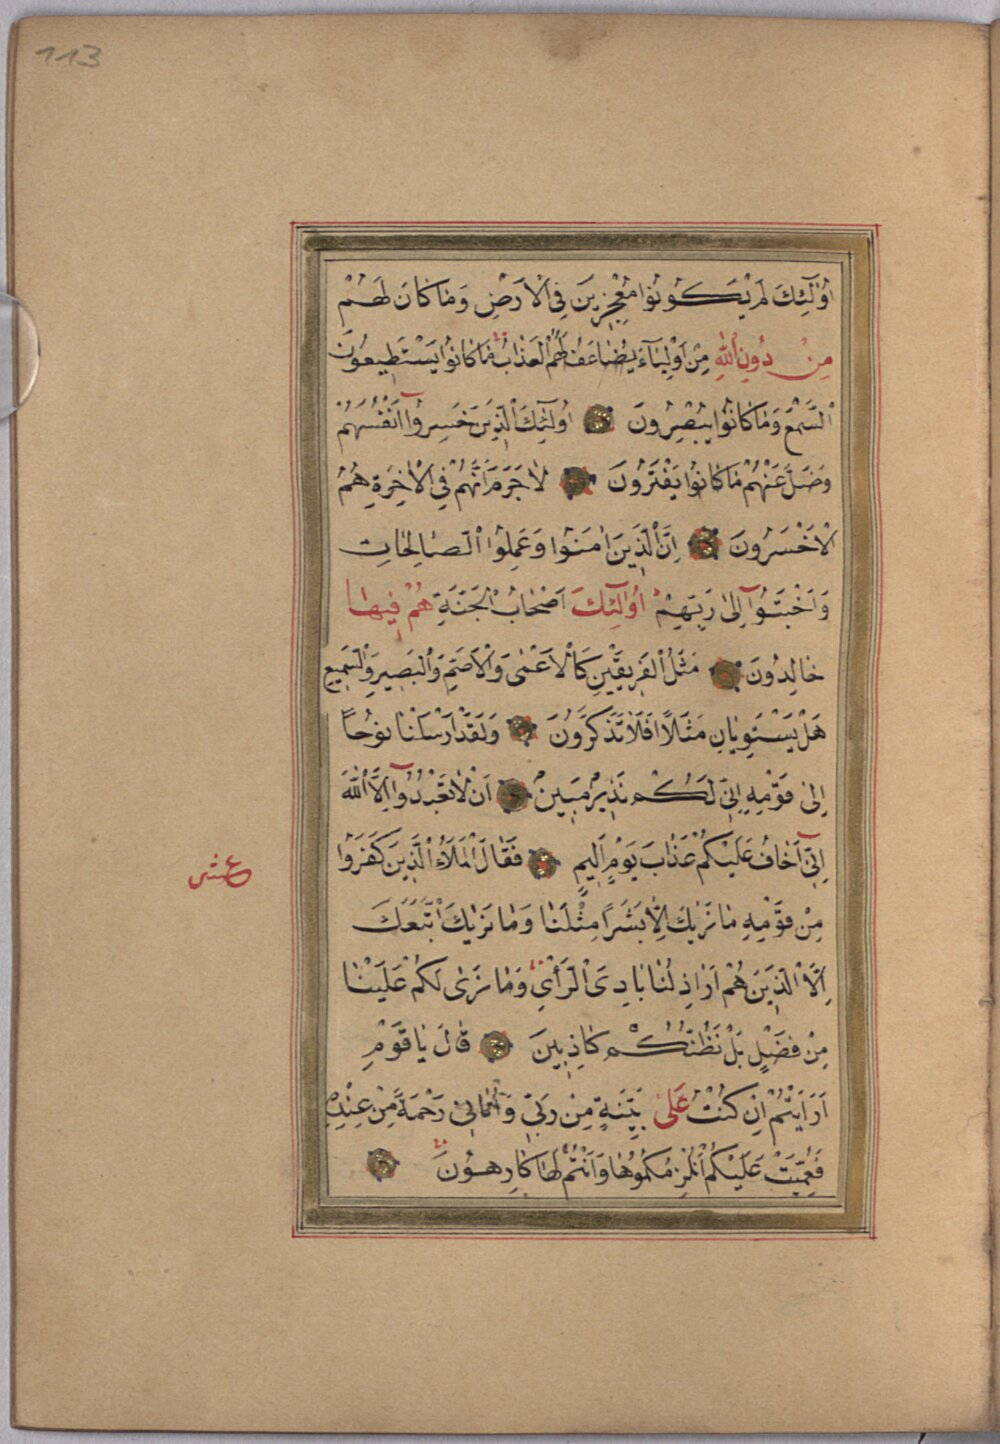 113
اُولٰٓئِكَ لَمْ يَكُونُوا مُعْجِزٖينَ فِي الْاَرْضِ وَمَا كَانَ لَهُمْ
مِنْ دُونِ اللّٰهِ مِنْ اَوْلِيَآءَ يُضَاعَفُ لَهُمُ الْعَذَابُ مَا كَانُوا يَسْتَطٖيعُونَ
السَّمْعَ وَمَا كَانُوا يُبْصِرُونَ اُولٰٓئِكَ الَّذٖينَ خَسِرُوٓا اَنْفُسَهُمْ
وَضَلَّ عَنْهُمْ مَا كَانُوا يَفْتَرُونَ لَا جَرَمَ اَنَّهُمْ فِي الْاٰخِرَةِ هُمُ
الْاَخْسَرُونَ اِنَّ الَّذٖينَ اٰمَنُوا وَعَمِلُوا الصَّالِحَاتِ
وَاَخْبَتُوٓا اِلٰى رَبِّهِمْ اُولٰٓئِكَ اَصْحَابُ الْجَنَّةِ هُمْ فٖيهَا
خَالِدُونَ مَثَلُ الْفَرٖيقَيْنِ كَالْاَعْمٰى وَالْاَصَمِّ وَالْبَصٖيرِ وَالسَّمٖيعِ
هَلْ يَسْتَوِيَانِ مَثَلًا اَفَلَا تَذَكَّرُونَ وَلَقَدْ اَرْسَلْنَا نُوحًا
اِلٰى قَوْمِهٖ اِنّٖي لَكُمْ نَذٖيرٌ مُبٖينٌ اَنْ لَا تَعْبُدُوٓا اِلَّا اللّٰهَ
اِنّٖٓي اَخَافُ عَلَيْكُمْ عَذَابَ يَوْمٍ اَلٖيمٍ فَقَالَ الْمَلَاُ الَّذٖينَ كَفَرُوا
عشر
مِنْ قَوْمِهٖ مَا نَرٰيكَ اِلَّا بَشَرًا مِثْلَنَا وَمَا نَرٰيكَ اتَّبَعَكَ
اِلَّا الَّذٖينَ هُمْ اَرَاذِلُنَا بَادِيَ الرَّأْيِ وَمَا نَرٰى لَكُمْ عَلَيْنَا
مِنْ فَضْلٍ بَلْ نَظُنُّكُمْ كَاذِبٖينَ قَالَ يَا قَوْمِ
اَرَاَيْتُمْ اِنْ كُنْتُ عَلٰى بَيِّنَةٍ مِنْ رَبّٖي وَاٰتَانٖي رَحْمَةً مِنْ عِنْدِهٖ
فَعُمِّيَتْ عَلَيْكُمْ اَنُلْزِمُكُمُوهَا وَاَنْتُمْ لَهَا كَارِهُونَ